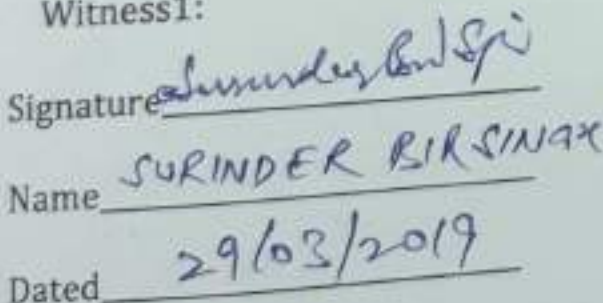 Witness1:
Signature
Name SURINDER BIR SINGH
Dated 29/03/2019